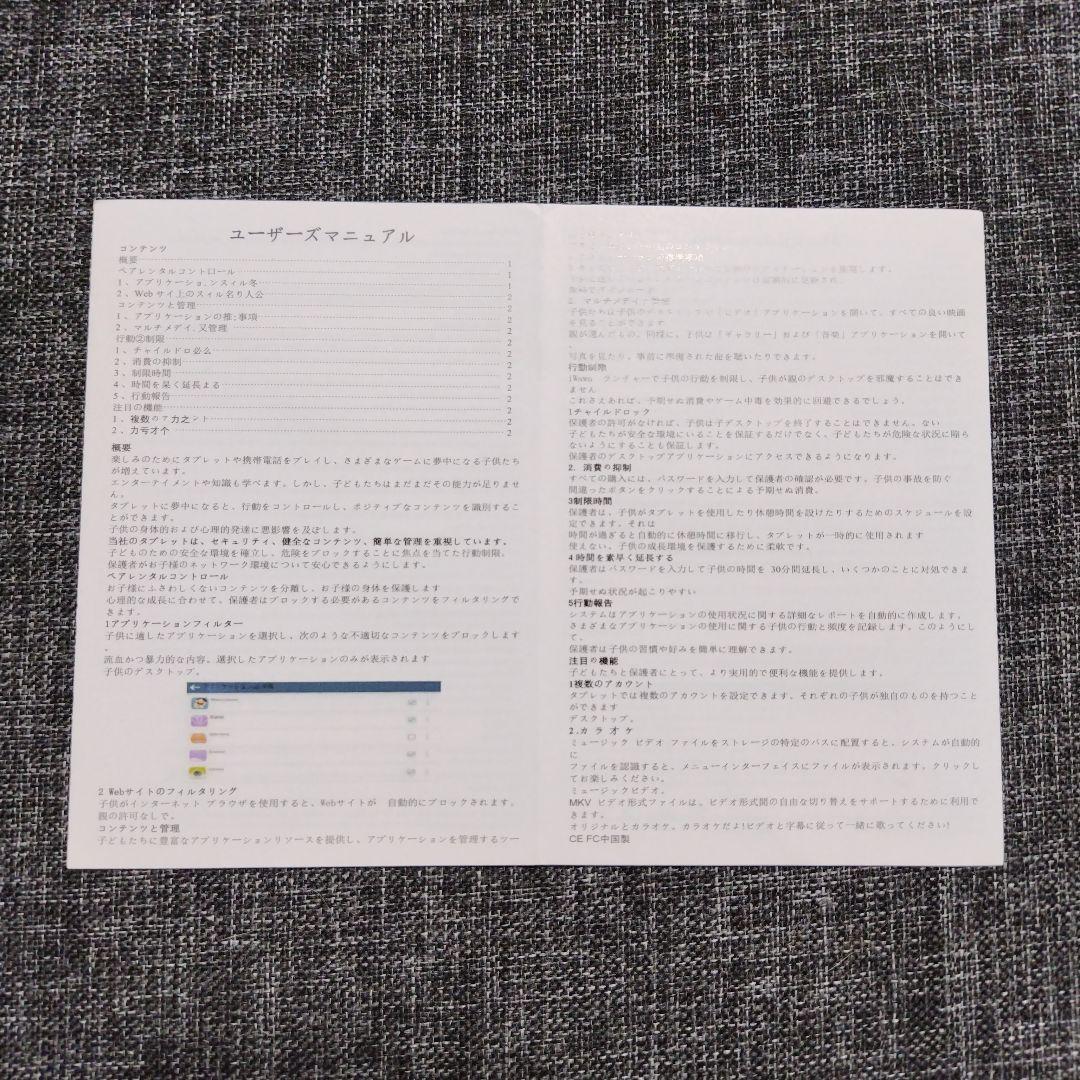 ユーザーズマニュアル
コンテンツ
概要 1
ペアレンタルコントロール 1
1、アプリケーショ,ンスィル冬 1
2、Webサイ上のスィル名り人公 2
コンテンツと管理 2
1、アプリケーションの推;事項 2
2、マルチメデイ,又管理 2
行動②制限 2
1、チャイルドロ必么 2
2、消費の抑制 2
3、制限時間 2
4、時間を呆く延長まる 2
5、行動報告 2
注目の機能 2
1、複数のア力之ント 2
2、力亏才个 2
概要
楽しみのためにタブレットや携帯電話をプレイし、さまざまなゲームに夢中になる子供たち
が増えています。
エンターテイメントや知識も学べます。しかし、子どもたちはまだまだその能力が足りませ
ん。
タブレットに夢中になると、行動をコントロールし、ポジティブなコンテンツを識別するこ
とができます。
子供の身体的および心理的発達に悪影響を及ぼします。
当社のタブレットは、セキュリティ、健全なコンテンツ、簡単な管理を重視しています。
子どものための安全な環境を確立し、危険をブロックすることに焦点を当てた行動制限。
保護者がお子様のネットワーク環境について安心できるようにします。
ペアレンタルコントロール
お子様にふさわしくないコンテンツを分離し、お子様の身体を保護します
心理的な成長に合わせて、保護者はブロックする必要があるコンテンツをフィルタリングで
きます。
1アプリケーションフィルター
子供に適したアプリケーションを選択し、次のような不適切なコンテンツをブロックします
。
流血かつ暴力的な内容。選択したアプリケーションのみが表示されます
子供のデスクトップ。
2 Webサイトのフィルタリング
子供がインターネット ブラウザを使用すると、Webサイトが 自動的にブロックされます。
親の許可なしで。
コンテンツと管理
子どもたちに豊富なアプリケーションリソースを提供し、アプリケーションを管理するツー
2. マルチメディア管理
アプリケーションを開いて、すべての良い映画
を見ることができます
親が選んだもの。同様に、子供は「ギャラリー」および「音楽」アプリケーションを開いて
、
写真を見たり、事前に準備された曲を聴いたりできます。
行動制限
ランチャーで子供の行動を制限し、子供が親のデスクトップを邪魔することはでき
ません
これさえあれば、予期せぬ消費やゲーム中毒を効果的に回避できるでしょう。
1チャイルドロック
保護者の許可がなければ、子供は子デスクトップを終了することはできません。ない
子どもたちが安全な環境にいることを保証するだけでなく、子どもたちが危険な状況に陥ら
ないようにすることも保証します。
保護者のデスクトップアプリケーションにアクセスできるようになります。
2. 消費の抑制
すべての購入には、パスワードを入力して保護者の確認が必要です。子供の事故を防ぐ
間違ったボタンをクリックすることによる予期せぬ消費。
3制限時間
保護者は、子供がタブレットを使用したり休憩時間を設けたりするためのスケジュールを設
定できます。それは
時間が過ぎると自動的に休憩時間に移行し、タブレットが一時的に使用されます
使えない、子供の成長環境を保護するために柔軟です。
4時間を素早く延長する
保護者はパスワードを入力して子供の時間を 30分間延長し、いくつかのことに対処できま
す。
予期せぬ状況が起こりやすい
5行動報告
システムはアプリケーションの使用状況に関する詳細なレポートを自動的に作成します。
さまざまなアプリケーションの使用に関する子供の行動と頻度を記録します。このようにし
て、
保護者は子供の習慣や好みを簡単に理解できます。
注目の機能
子どもたちと保護者にとって、より実用的で便利な機能を提供します。
1複数のアカウント
タブレットでは複数のアカウントを設定できます、それぞれの子供が独自のものを持つこと
ができます
デスクトップ。
2.カラオケ
ミュージック ビデオ ファイルをストレージの特定のパスに配置すると、システムが自動的
に
ファイルを認識すると、メニューインターフェイスにファイルが表示されます。クリックし
てお楽しみください。
ミュージックビデオ。
MKV ビデオ形式ファイルは、ビデオ形式間の自由な切り替えをサポートするために利用で
きます。
オリジナルとカラオケ。カラオケだよ!ビデオと字幕に従って一緒に歌ってください!
CE FC中国製